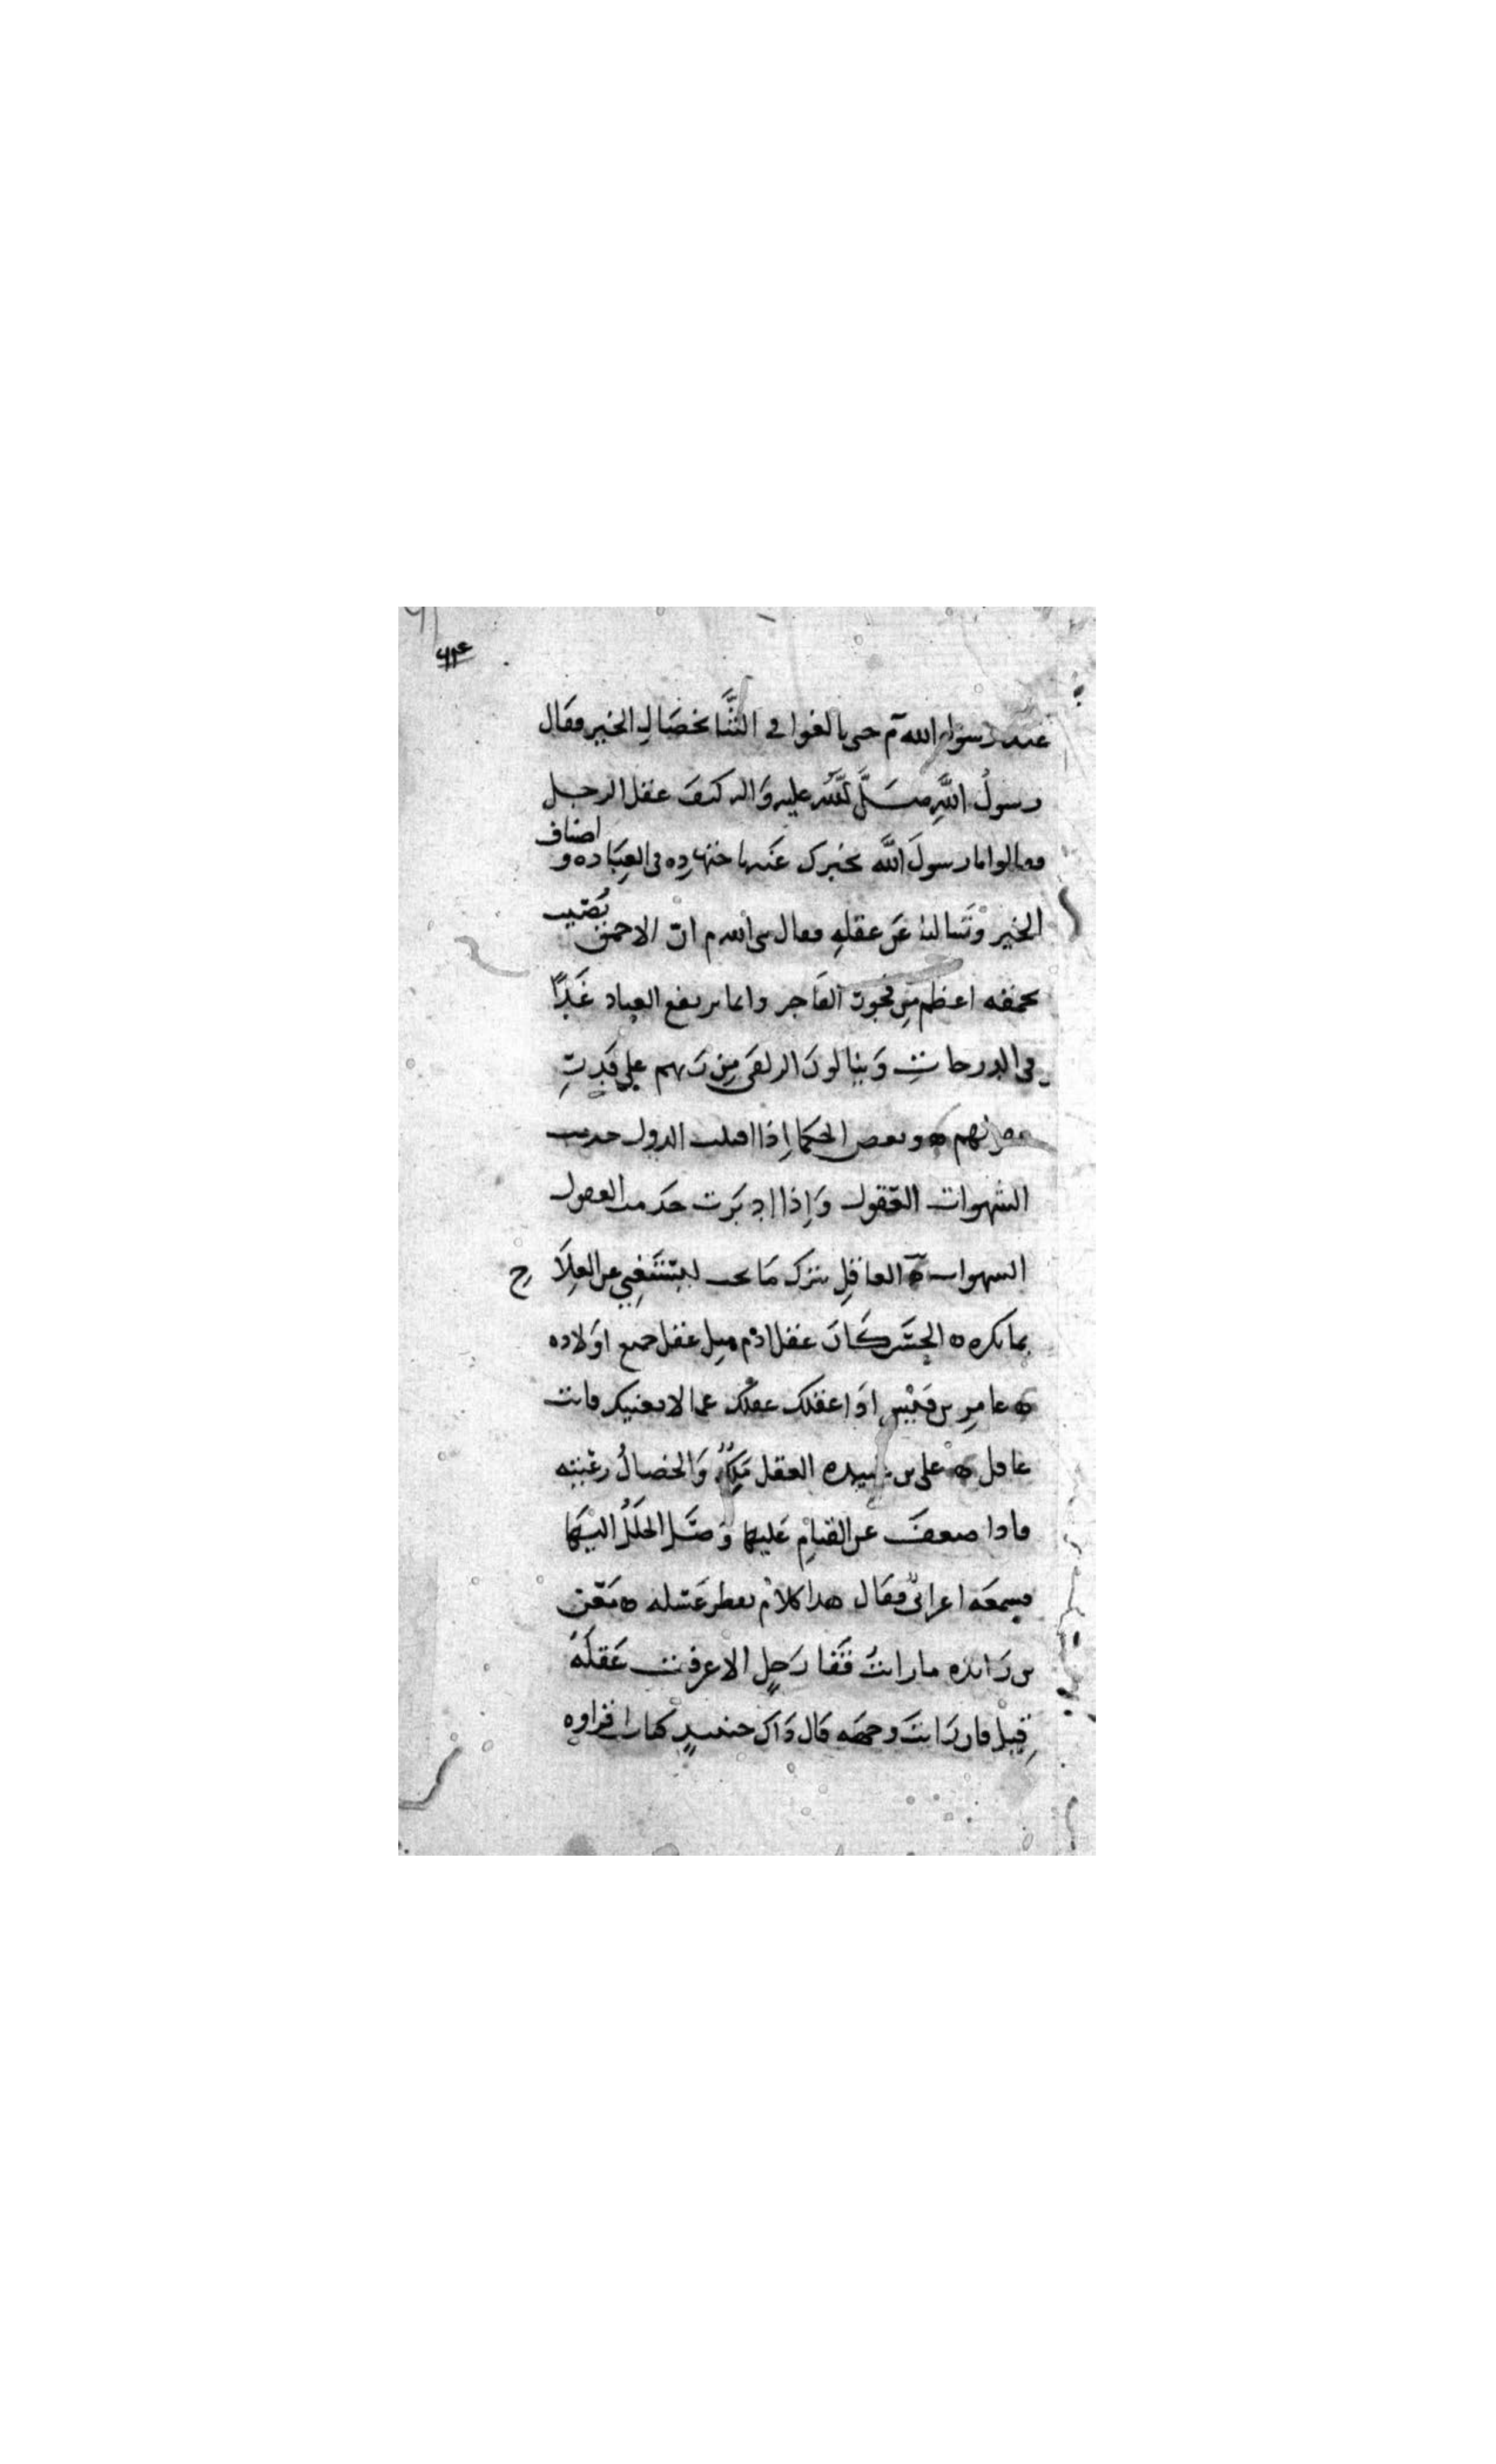 عند رسول الله م حتى بالغوا في الثَّنَا بخصَالِ الخير فقَال
رسولُ اللَّهِ صَلَّى اللَّهُ عليه وَاله كيفَ عقل الرجل
فقالوا يا رسولَ اللَّه نخبرك عَنه باجتهادِه في العِبَاده و اصناف
الخير وتَسالنا عَن عقلهِ فقال نبي الله م انّ الاحمق يُصَيب
بحمقه اعظم مِن فجور الفَاجر وانما يرتفع العباد غَدًا
في الدرجاتِ وَينالونَ الزلفَى مِن رَبهم على قَدرِ
عقولهم ه وبعض الحكما اِذا اقبلت الدول خدمت
الشهوات العُقول وَاِذا ادبَرت خدَمت العقول
الشهوات ه العاقِل يترك مَا يحب ليستَغنِي عن العِلَاج
بما يكره ه الحسَن كَانَ عقل ادَم مثل عقل جميع اوَلاده
ه عامرِ بن قَيْس اذَا عقلك عقلُك عما لا يعنيك فانت
عاقل ه على بن عبيده العقل مَلِكٌ وَالخصالُ رعيته
فاذا ضعفَ عن القيَامِ عَليها وَصَل الخَلَلُ اليهَا
فسمعَه اعرابىٌ فقَال هذا كلامٌ يقطر عَسَله ه مَعْن
بن زَائده ما رايتُ قَفا رَجلٍ الا عرفت عَقلَهُ
قِيل فان رَايتَ وجهَه قَال ذَاك حينئذٍ كتاب اقراوه